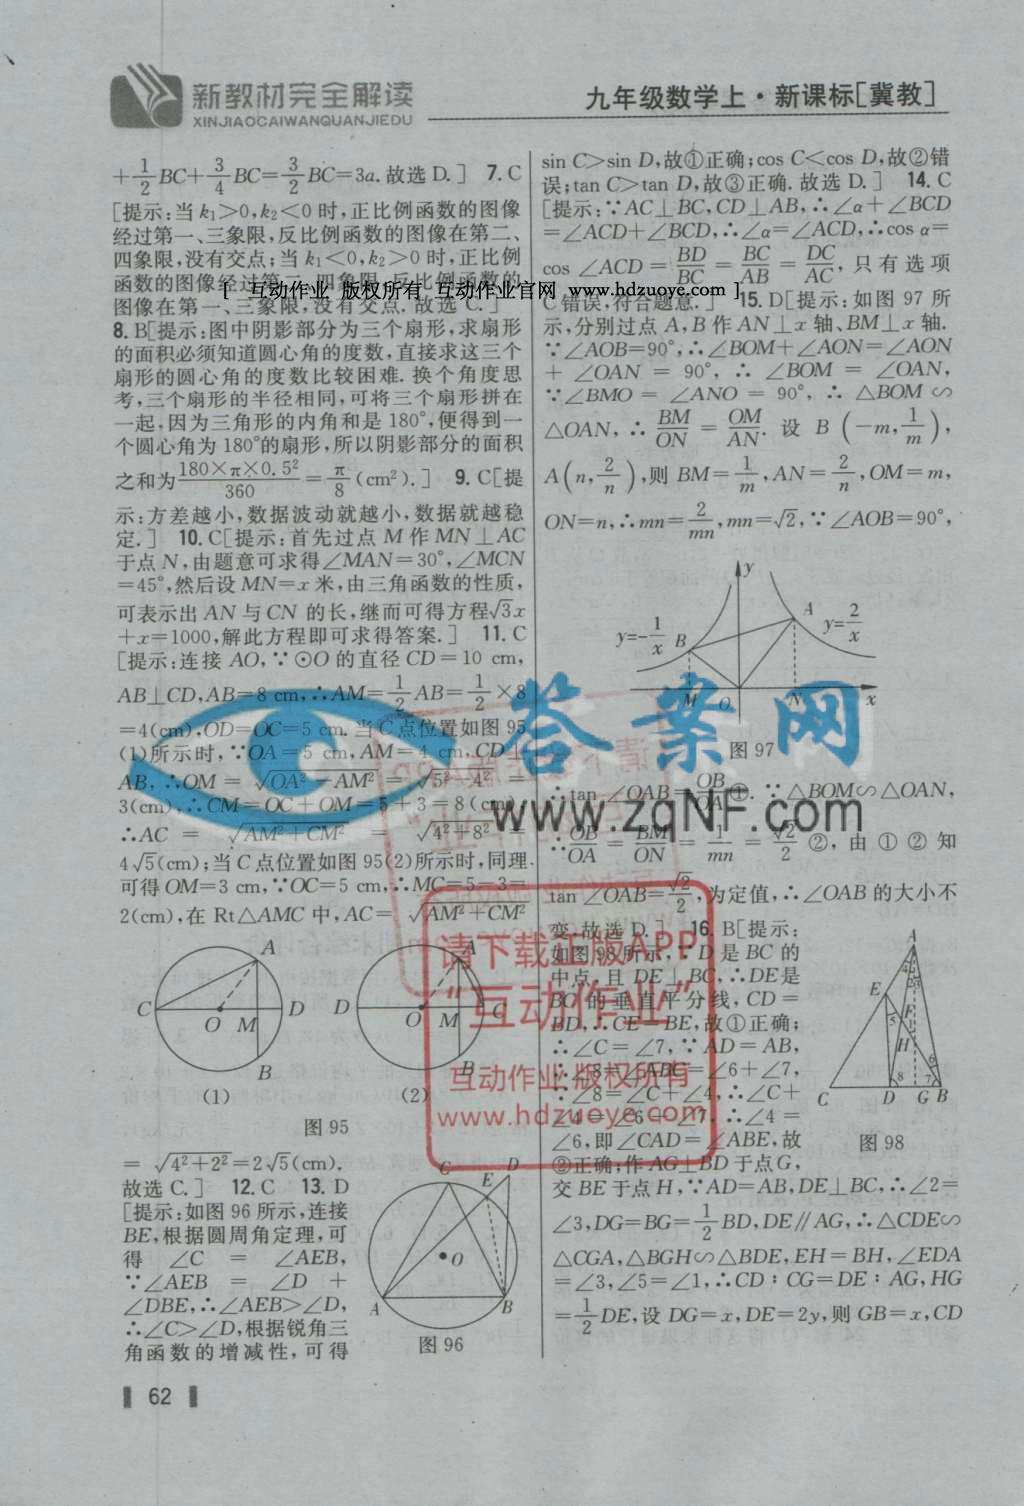 新教材完全解读
XINJIAOCAIWANQUANJIEDU
九年级数学上·新课标[冀教]
+1/2BC+3/4BC=3/2BC=3a.故选D.] 7.C
[提示:当k₁>0,k₂<0时,正比例函数的图像
经过第一、三象限,反比例函数的图像在第二、
四象限,没有交点;当k₁<0,k₂>0时,正比例
函数的图像经过第二、四象限,反比例函数的
图像在第一、三象限,没有交点.故选C.]
[ 互动作业 版权所有 互动作业官网 www.hdzuoye.com ]
8.B[提示:图中阴影部分为三个扇形,求扇形
的面积必须知道圆心角的度数,直接求这三个
扇形的圆心角的度数比较困难.换个角度思
考,三个扇形的半径相同,可将三个扇形拼在
一起,因为三角形的内角和是180°,便得到一
个圆心角为180°的扇形,所以阴影部分的面积
之和为180×π×0.5²/360=π/8(cm²).] 9.C[提
示:方差越小,数据波动就越小,数据就越稳
定.] 10.C[提示:首先过点M作MN⊥AC
于点N,由题意可求得∠MAN=30°,∠MCN
=45°,然后设MN=x米,由三角函数的性质,
可表示出AN与CN的长,继而可得方程√3x
+x=1000,解此方程即可求得答案.] 11.C
[提示:连接AO,∵⊙O的直径CD=10 cm,
AB⊥CD,AB=8 cm,∴AM=1/2AB=1/2×8
=4(cm),OD=OC=5 cm.当C点位置如图95
(1)所示时,∵OA=5 cm,AM=4 cm,CD⊥
AB,∴OM=√OA²-AM²=√5²-4²=
3(cm),∴CM=OC+OM=5+3=8(cm),
∴AC=√AM²+CM²=√4²+8²=
4√5(cm);当C点位置如图95(2)所示时,同理
可得OM=3 cm,∵OC=5 cm,∴MC=5-3=
2(cm),在Rt△AMC中,AC=√AM²+CM²
A
C
O
M
D
B
(1)
A
D
O
M
C
B
(2)
图95
=√4²+2²=2√5(cm).
故选C.] 12.C 13.D
[提示:如图96所示,连接
BE,根据圆周角定理,可
得∠C=∠AEB,
∵∠AEB=∠D+
∠DBE,∴∠AEB>∠D,
∴∠C>∠D,根据锐角三
角函数的增减性,可得
C
E
D
O
A
B
图96
62
sin C>sin D,故①正确;cos C<cos D,故②错
误;tan C>tan D,故③正确.故选D.] 14.C
[提示:∵AC⊥BC,CD⊥AB,∴∠α+∠BCD
=∠ACD+∠BCD,∴∠α=∠ACD,∴cos α=
cos∠ACD=BD/BC=BC/AB=DC/AC,只有选项
C错误,符合题意.] 15.D[提示:如图97所
示,分别过点A,B作AN⊥x轴、BM⊥x轴.
∵∠AOB=90°,∴∠BOM+∠AON=∠AON
+∠OAN=90°,∴∠BOM=∠OAN,
∵∠BMO=∠ANO=90°,∴△BOM∽
△OAN,∴BM/ON=OM/AN.设B(-m,1/m),
A(n,2/n),则BM=1/m,AN=2/n,OM=m,
ON=n,∴mn=2/mn,mn=√2,∵∠AOB=90°,
y
y=-1/x
B
A
y=2/x
M
O
N
x
图97
∴tan∠OAB=OB/OA①.∵△BOM∽△OAN,
∴OB/OA=BM/ON=1/mn=√2/2②,由①②知
tan∠OAB=√2/2,为定值,∴∠OAB的大小不
变,故选D.] 16.B[提示:
如图98所示,∵D是BC的
中点,且DE⊥BC,∴DE是
BC的垂直平分线,CD=
BD,∴CE=BE,故①正确;
∴∠C=∠7,∵AD=AB,
∴∠8=∠ABC=∠6+∠7,
∵∠8=∠C+∠4,∴∠C+
∠4=∠6+∠7,∴∠4=
∠6,即∠CAD=∠ABE,故
②正确;作AG⊥BD于点G,
A
E
F
H
C
D
G
B
图98
交BE于点H,∵AD=AB,DE⊥BC,∴∠2=
∠3,DG=BG=1/2BD,DE∥AG,∴△CDE∽
△CGA,△BGH∽△BDE,EH=BH,∠EDA
=∠3,∠5=∠1,∴CD∶CG=DE∶AG,HG
=1/2DE,设DG=x,DE=2y,则GB=x,CD
答案网
www.zqNF.com
请下载正版APP
“互动作业”
互动作业 版权所有
www.hdzuoye.com